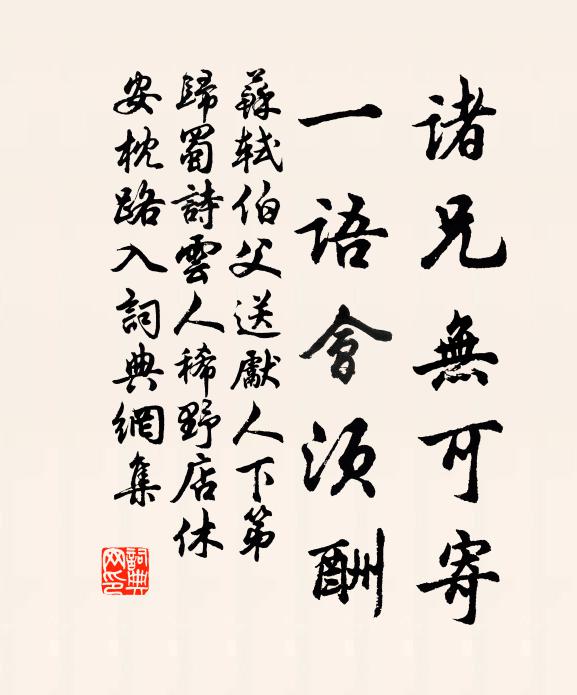 諸兄無可寄
一語會須酬
蘇軾伯父送獻人下第
歸蜀詩雲人稀野店休
安枕路入詞典網集
詞典网印